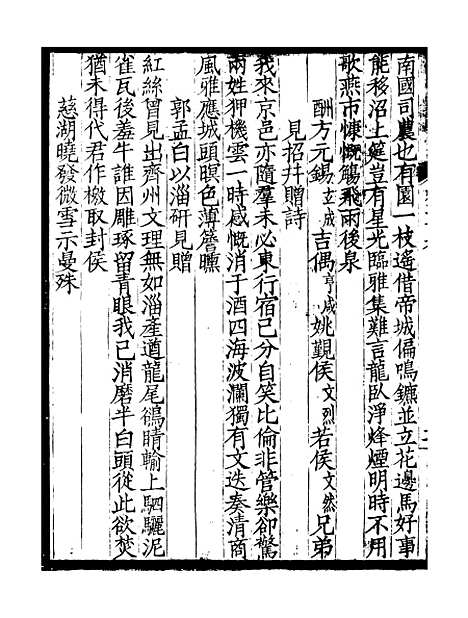 南國司農也有園一枝遙借帝城偏鳴鑣並立花邊馬好事
能移沼上筵豈有星光臨雅集難言龍臥淨烽煙明時不用
歌燕市慷慨觴飛雨後泉
酬方元錫宏咸吉偶亨咸姚覲侯文烈若侯文然兄弟
見招幷贈詩
我來京邑亦隨羣未必東行宿已分自笑比倫非管樂卻驚
兩姓狎機雲一時感慨消千酒四海波瀾獨有文迭奏清商
風雅應城頭暝色薄簷曛
郭孟白以淄硏見贈
紅絲曾見出齊州文理無如淄產遒龍尾鵒睛輸上駟驪泥
雀瓦後羞牛誰因雕琢留青眼我已消磨半白頭從此欲焚
猶未得代君作檄取封侯
慈湖曉發微雪示曼殊